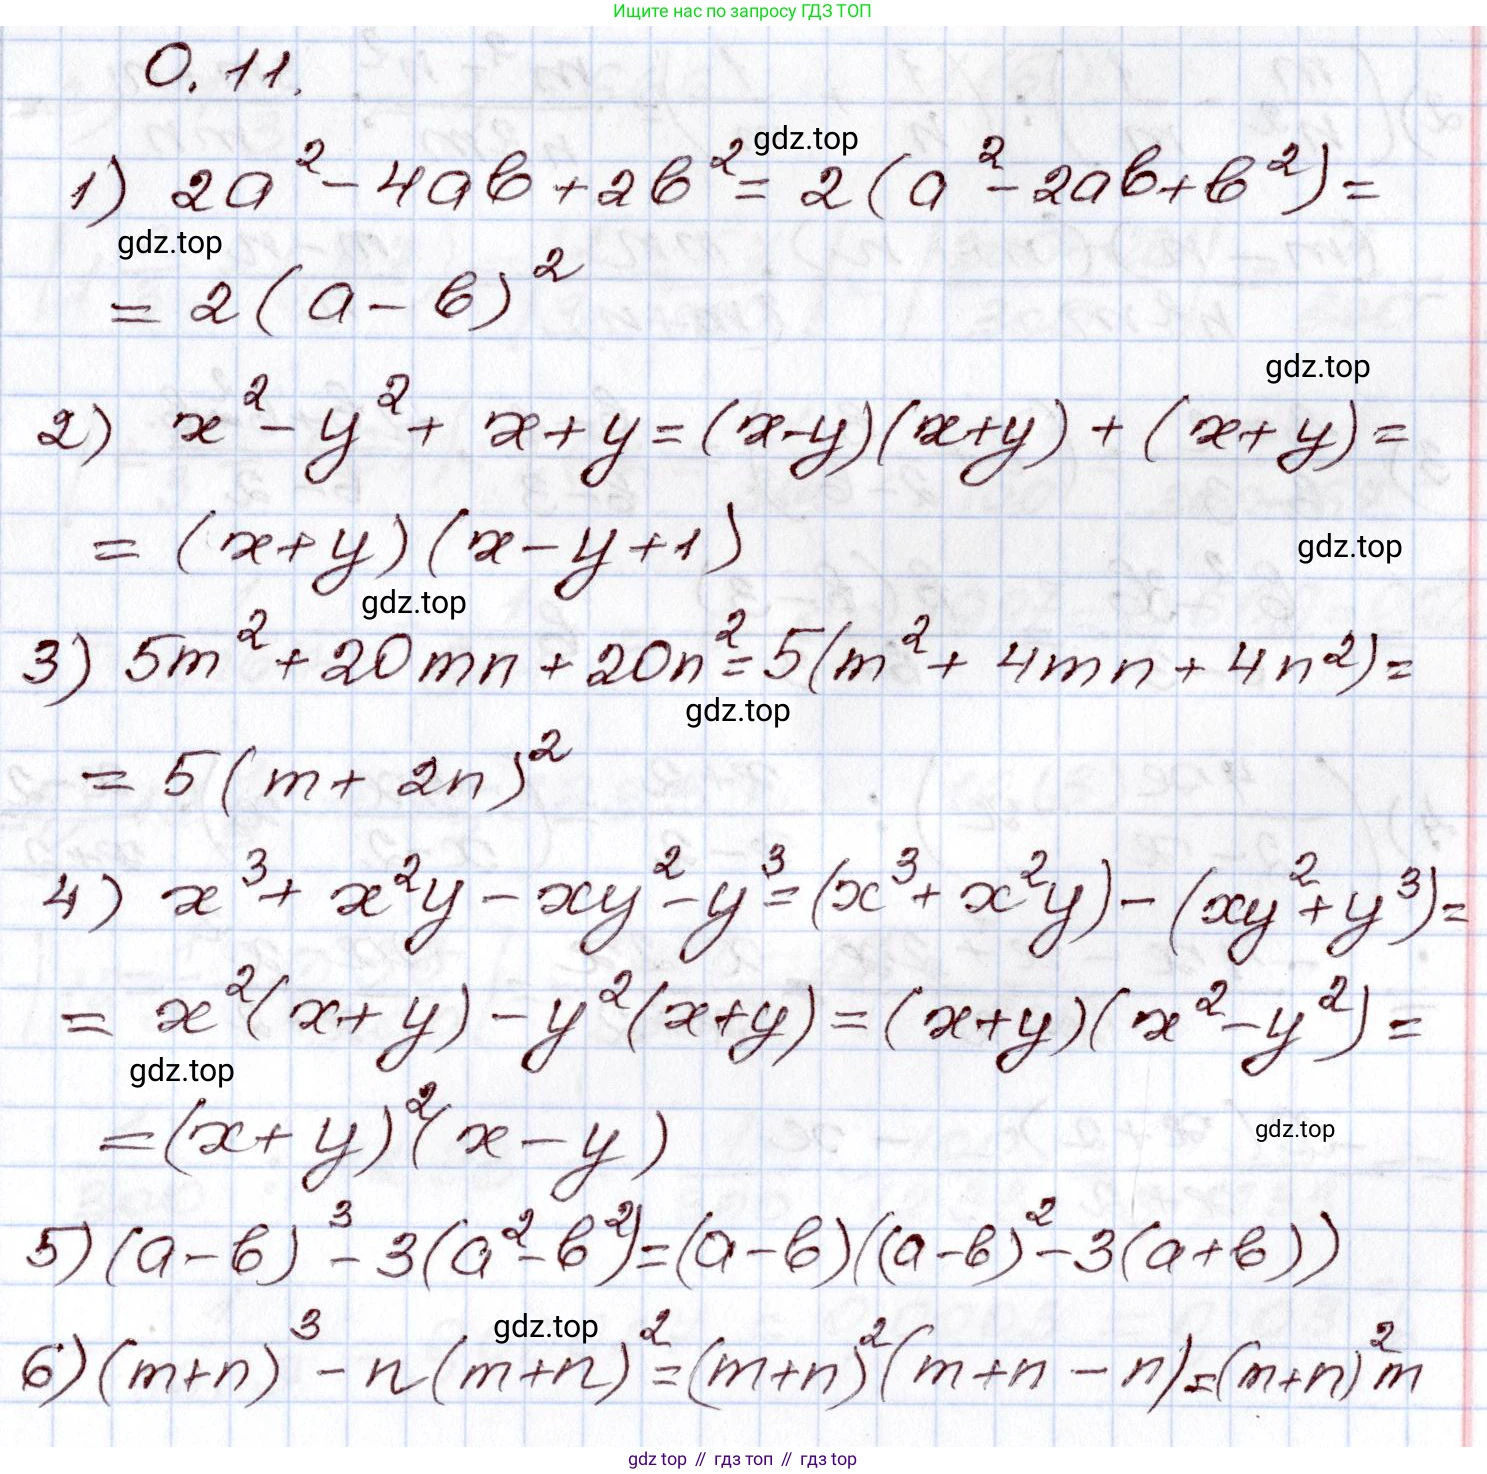 Ищите нас по запросу ГДЗ ТОП
0.11.
gdz.top
1) 2a² - 4ab + 2b² = 2(a² - 2ab + b²) =
gdz.top
= 2(a - b)²
gdz.top
2) x² - y² + x + y = (x-y)(x+y) + (x+y) =
= (x+y)(x - y + 1)
gdz.top
gdz.top
3) 5m² + 20mn + 20n² = 5(m² + 4mn + 4n²) =
gdz.top
= 5(m + 2n)²
4) x³ + x²y - xy² - y³ = (x³ + x²y) - (xy² + y³) =
= x²(x+y) - y²(x+y) = (x+y)(x² - y²) =
gdz.top
= (x+y)²(x - y)
gdz.top
5) (a-b)³ - 3(a² - b²) = (a-b)((a-b)² - 3(a+b))
gdz.top
6) (m+n)³ - n(m+n)² = (m+n)²(m+n - n) = (m+n)²m
gdz top // гдз топ // гдз top